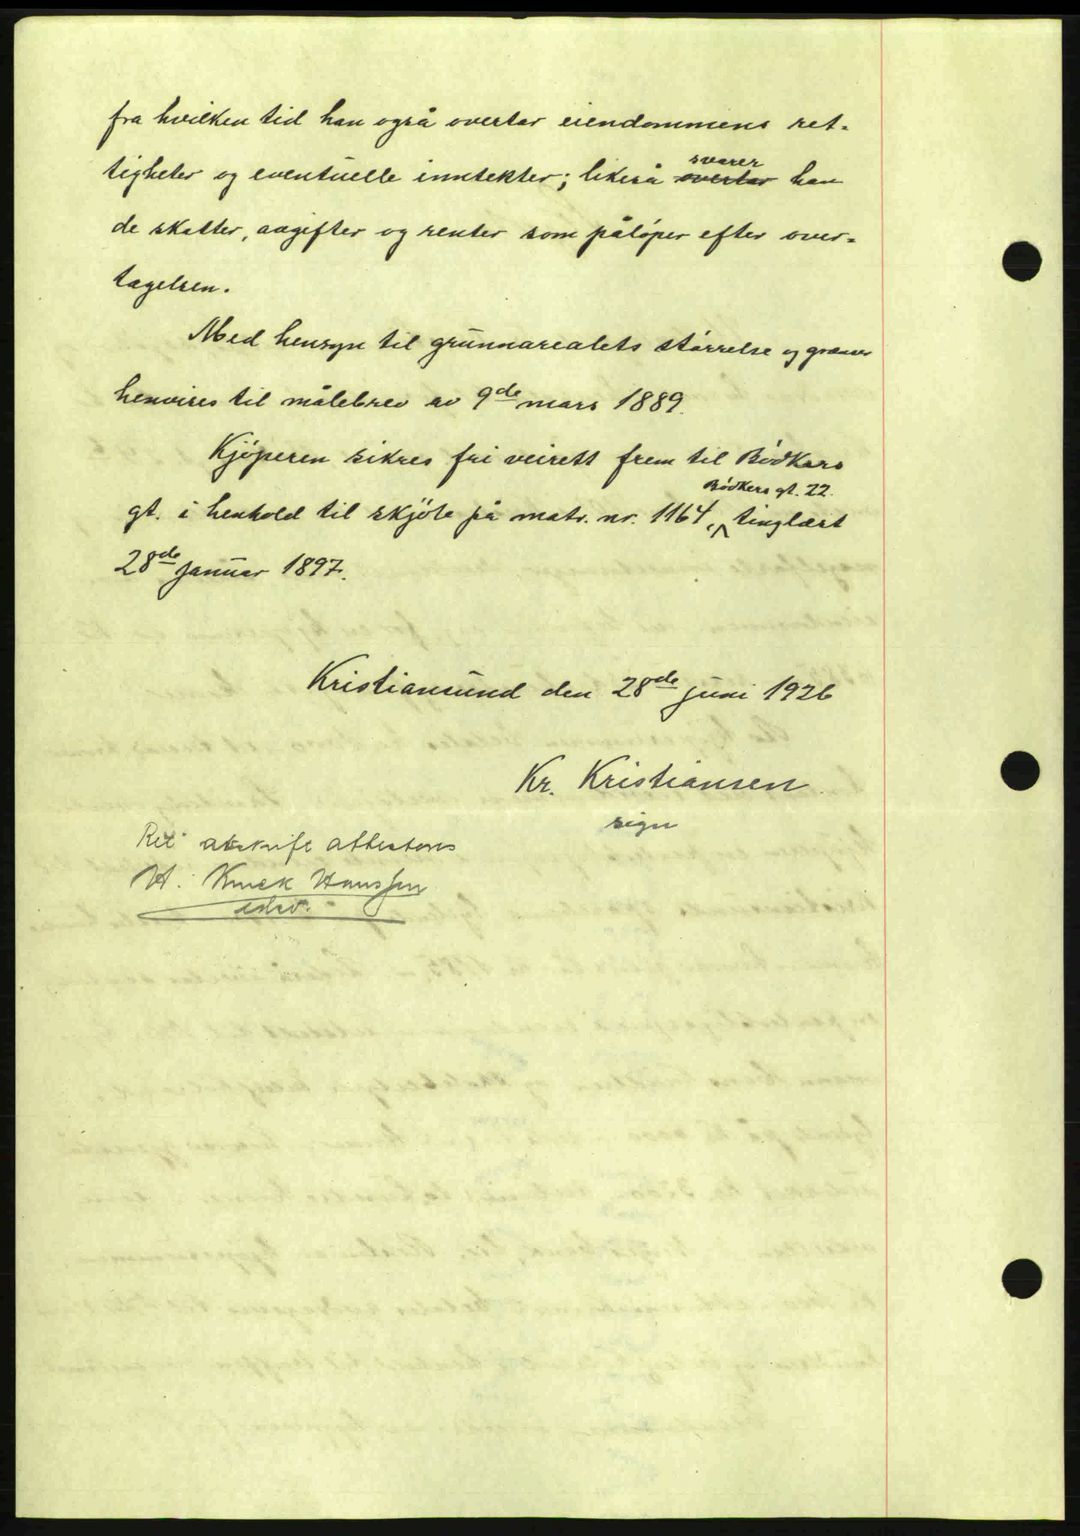 fra hvilken tid han også overtar eiendommens ret-
tigheter og eventuelle inntekter; likeså overtar svarer han
de skatter, avgifter og renter som påløper efter over-
tagelsen.
Med hensyn til grunnarealets størrelse og grænser
henvises til målebrev av 9de mars 1889.
Kjøperen sikres fri veirett frem til Bødkers
gt. i henhold til skjøte på matr. nr. 1164, Bødkers gt. 22. tinglæst
28de januar 1897.
Kristiansund den 28de juni 1926
Kr. Kristiansen
sign
Ret avskrift attesteres
H. Knuck Hanssen